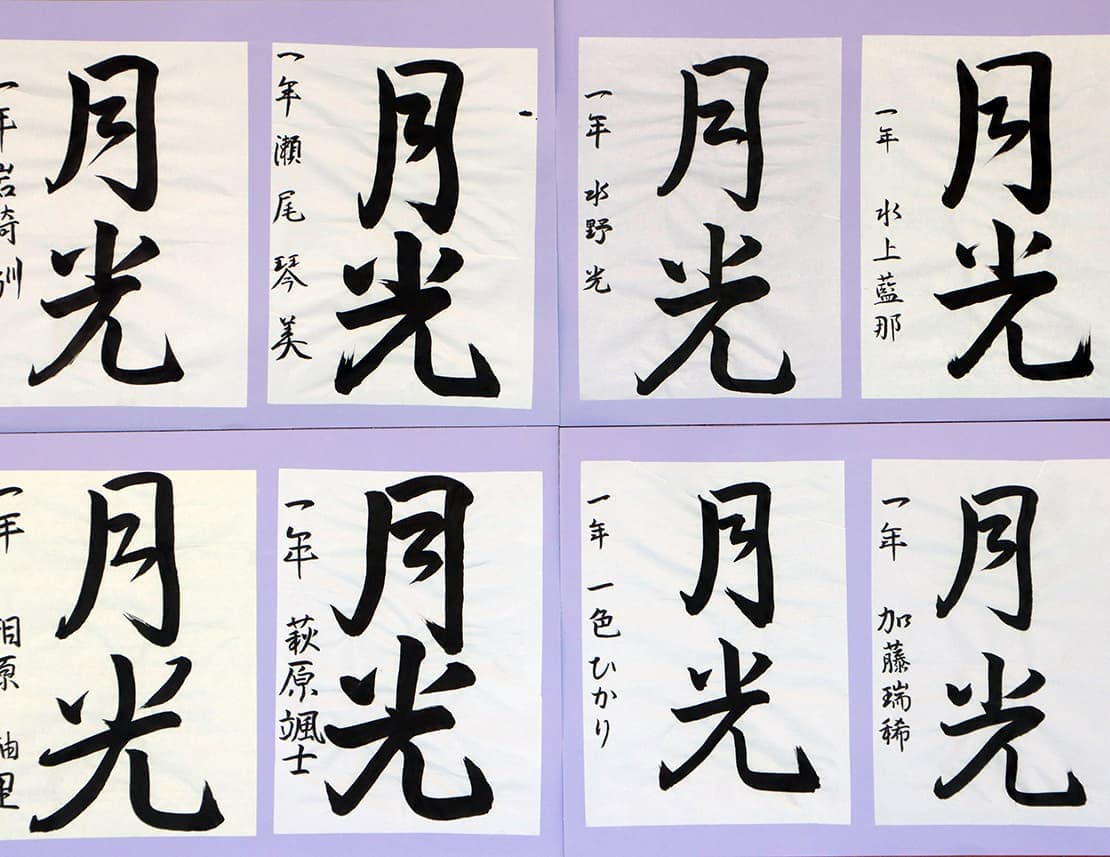 月光
一年 岩崎
月光
一年 瀬尾琴美
月光
一年 水野光
月光
一年 水上藍那
月光
一年 相原
月光
一年 萩原颯士
月光
一年 一色ひかり
月光
一年 加藤瑞稀